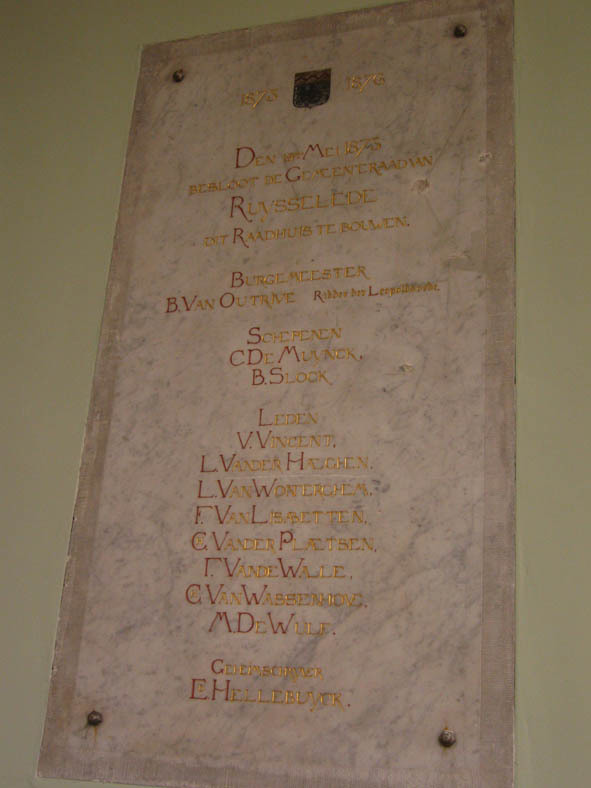 1873 1876
DEN MEI 1873
BESLOOT DE GEMEENTERAAD VAN
RUYSSELEDE
DIT RAADHUIS TE BOUWEN.
BURGEMEESTER
B. VAN OUTRIVE Ridder der Leopoldsorde.
SCHEPENEN
C. DE MUYNCK,
B. SLOCK
LEDEN
V. VINCENT,
L. VANDER HÆGHEN.
L. VAN WONTERGHEM,
F. VAN LISABETTEN,
VANDER PLÆTSEN,
F. VANDE WALLE,
VAN WASSENHOVE,
M. DE WULF.
GEHEIMSCHRIJVER
E. HELLEBUYCK.